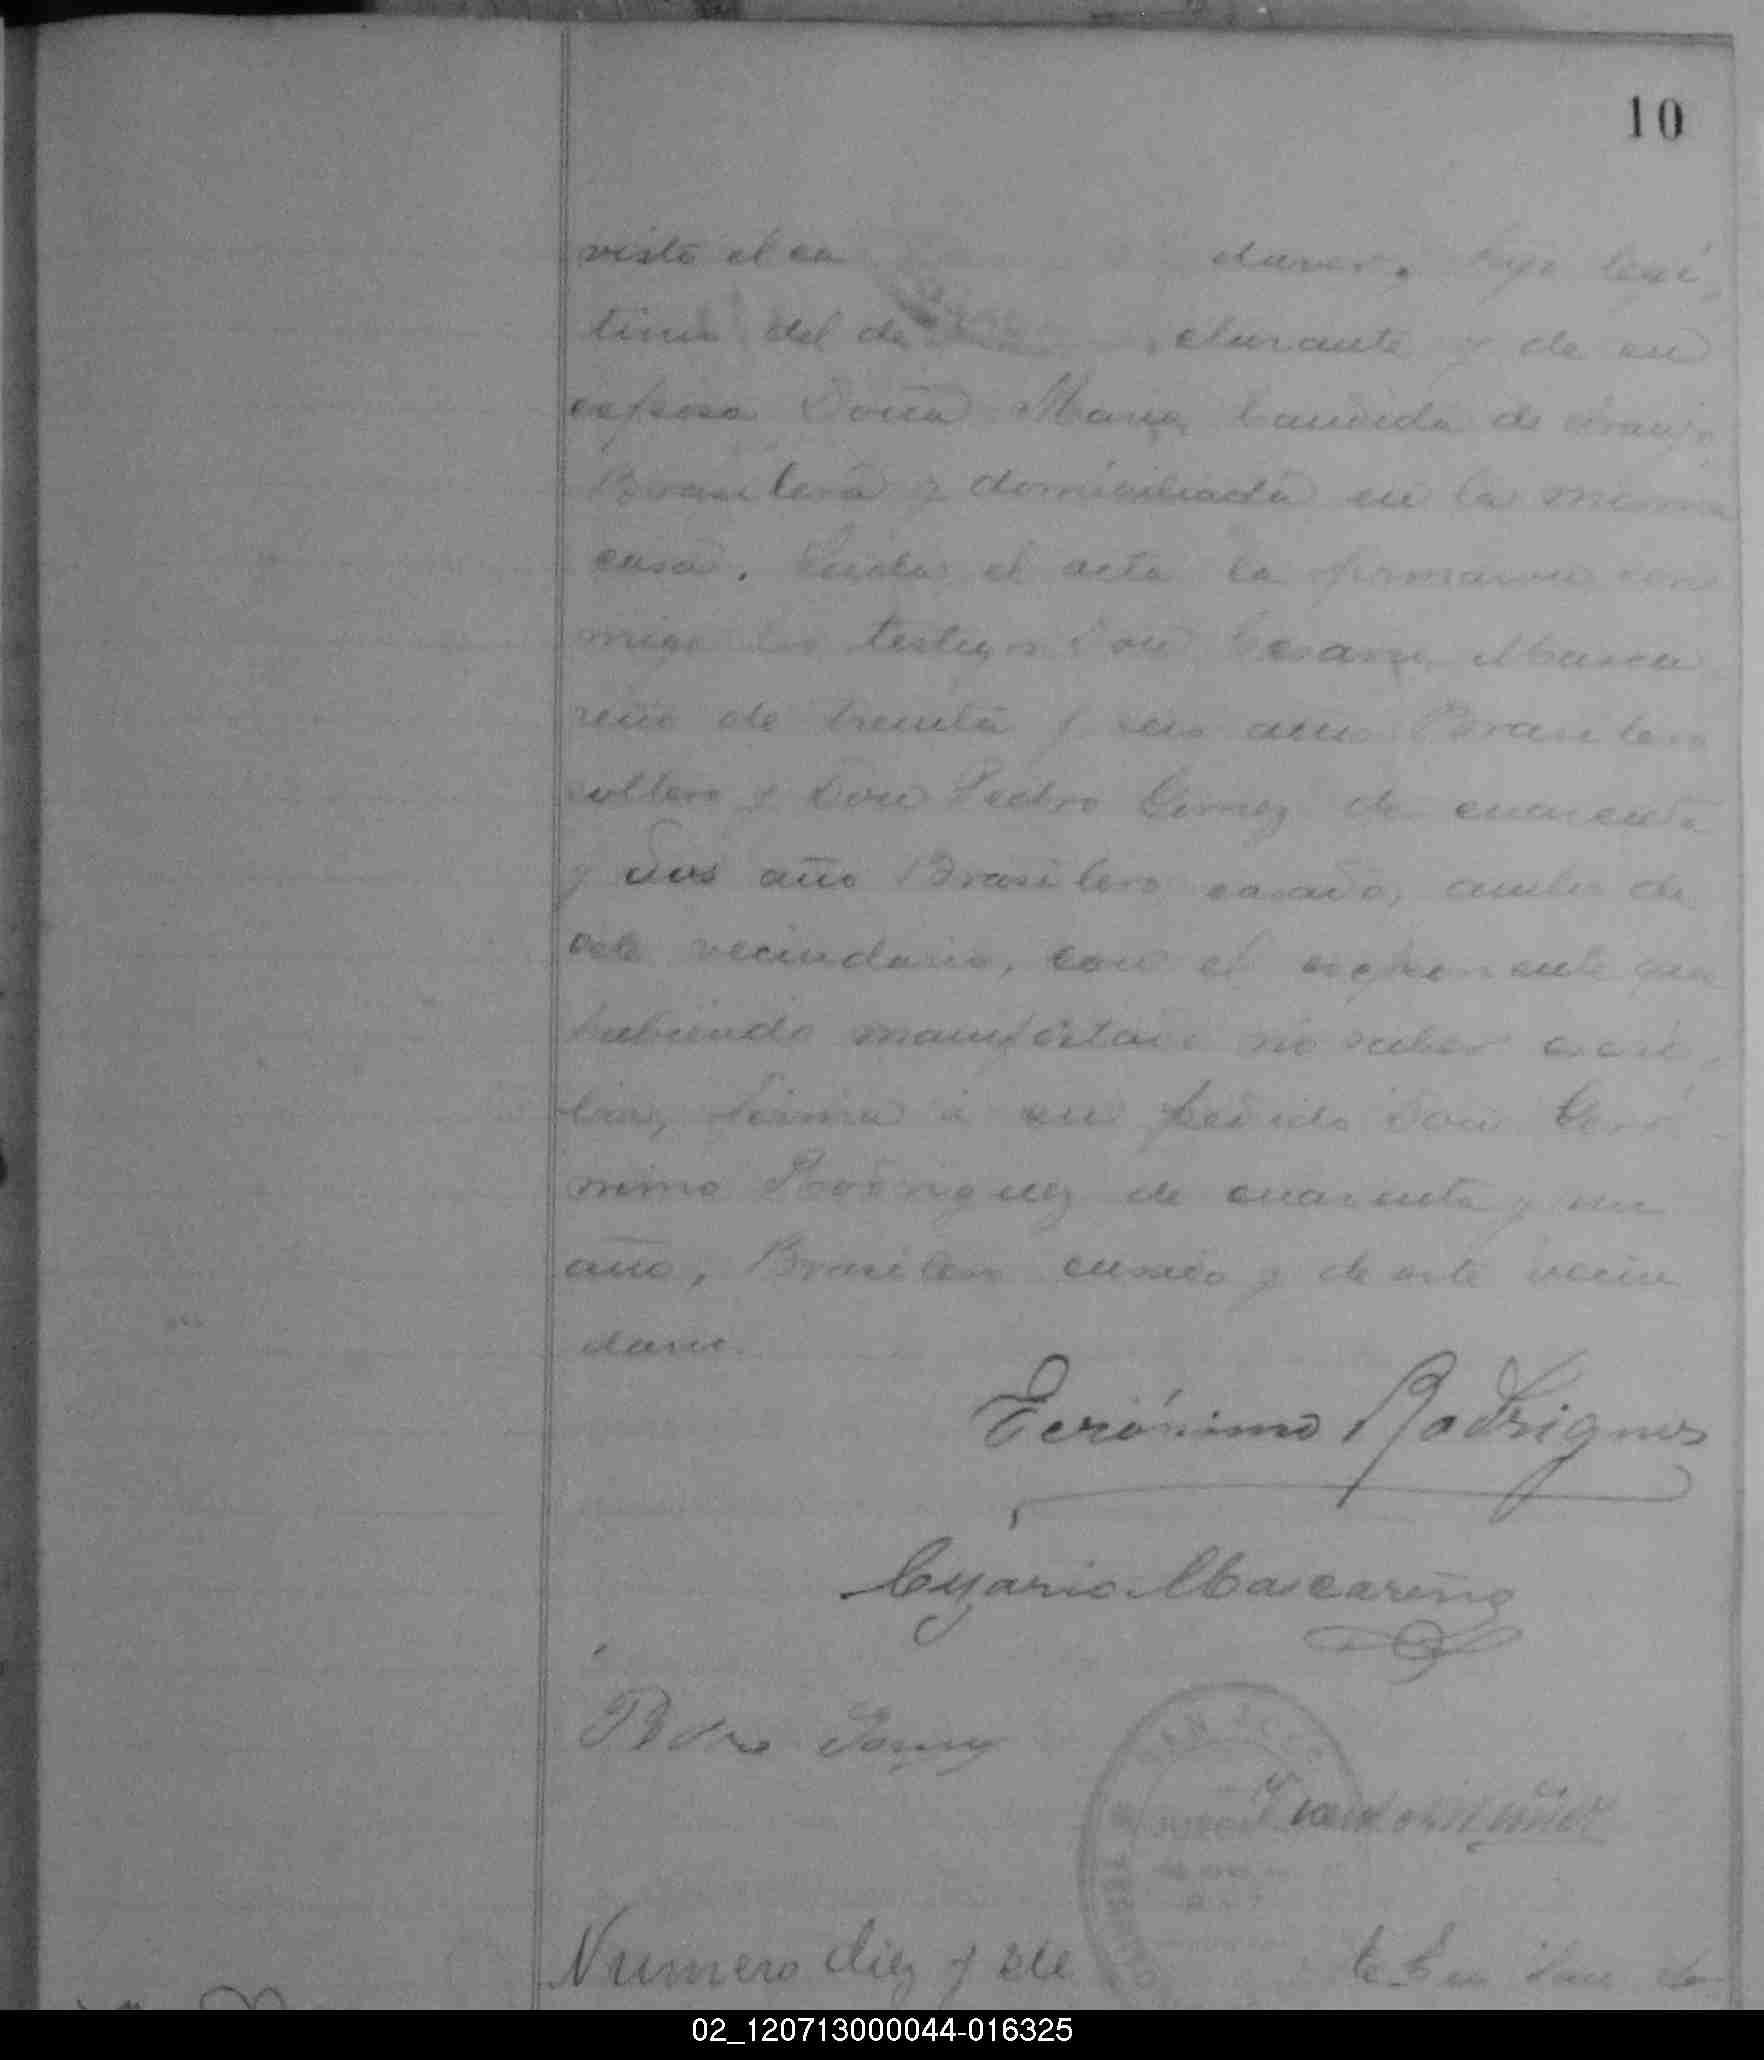 10
visto el ca daver, hijo legí
timo del de clarante y de su
esposa Doña Maria Candida de Araujo
Brasilera y domiciliada en la misma
casa. Leida el acta la firmaron con
migo los testigos Don Cesario Masca
reño de treinta y seis años Brasilero
soltero y Don Pedro Gomez de cuarenta
y dos año Brasilero casado, ambos de
este vecindario, con el exponente que
habiendo manifestado no saber escri
bir, firma á su pedido Don Gero
nimo Rodriguez de cuarenta y un
año, Brasilero casado y de este vecin
dario.
Gerónimo Rodrigues
Cezario Mascareño
Pedro Gomez
SAN
JUZGADO
Muñoz
Numero diez y sie te En San
02_120713000044-016325